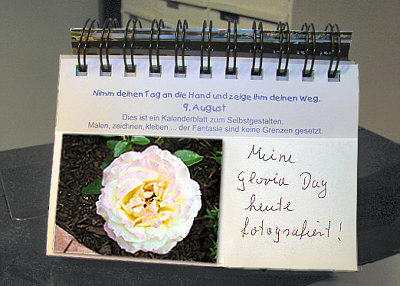 Nimm deinen Tag an die Hand und zeige ihm deinen Weg.
9. August
Dies ist ein Kalenderblatt zum Selbstgestalten.
Malen, zeichnen, kleben ... der Fantasie sind keine Grenzen gesetzt.
Meine
Gloria Day
heute
fotografiert!